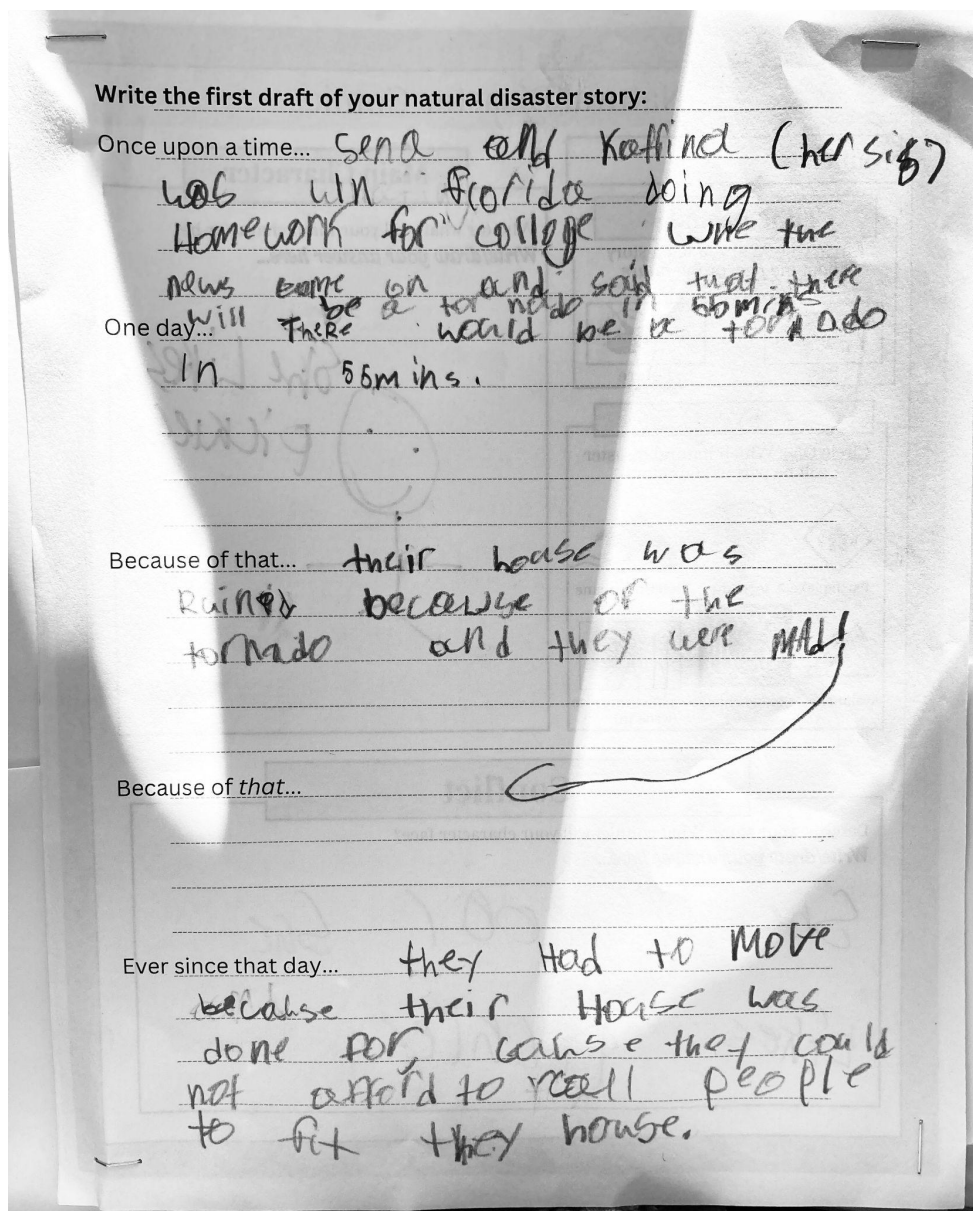 Write the first draft of your natural disaster story:
Once upon a time... Send and Kaffind (her sis)
was uin florida doing
Homework for college wite the
news come on and said that there
will be a tornado in 55mins
One day... THeRe would be a tornado
In 55mins.
Because of that... their house was
Ruined because of the
tornado and they were MAd!
Because of that...
Ever since that day... they Had to Move
because their House was
done for, cause they could
not afford to call people
to fit they house.